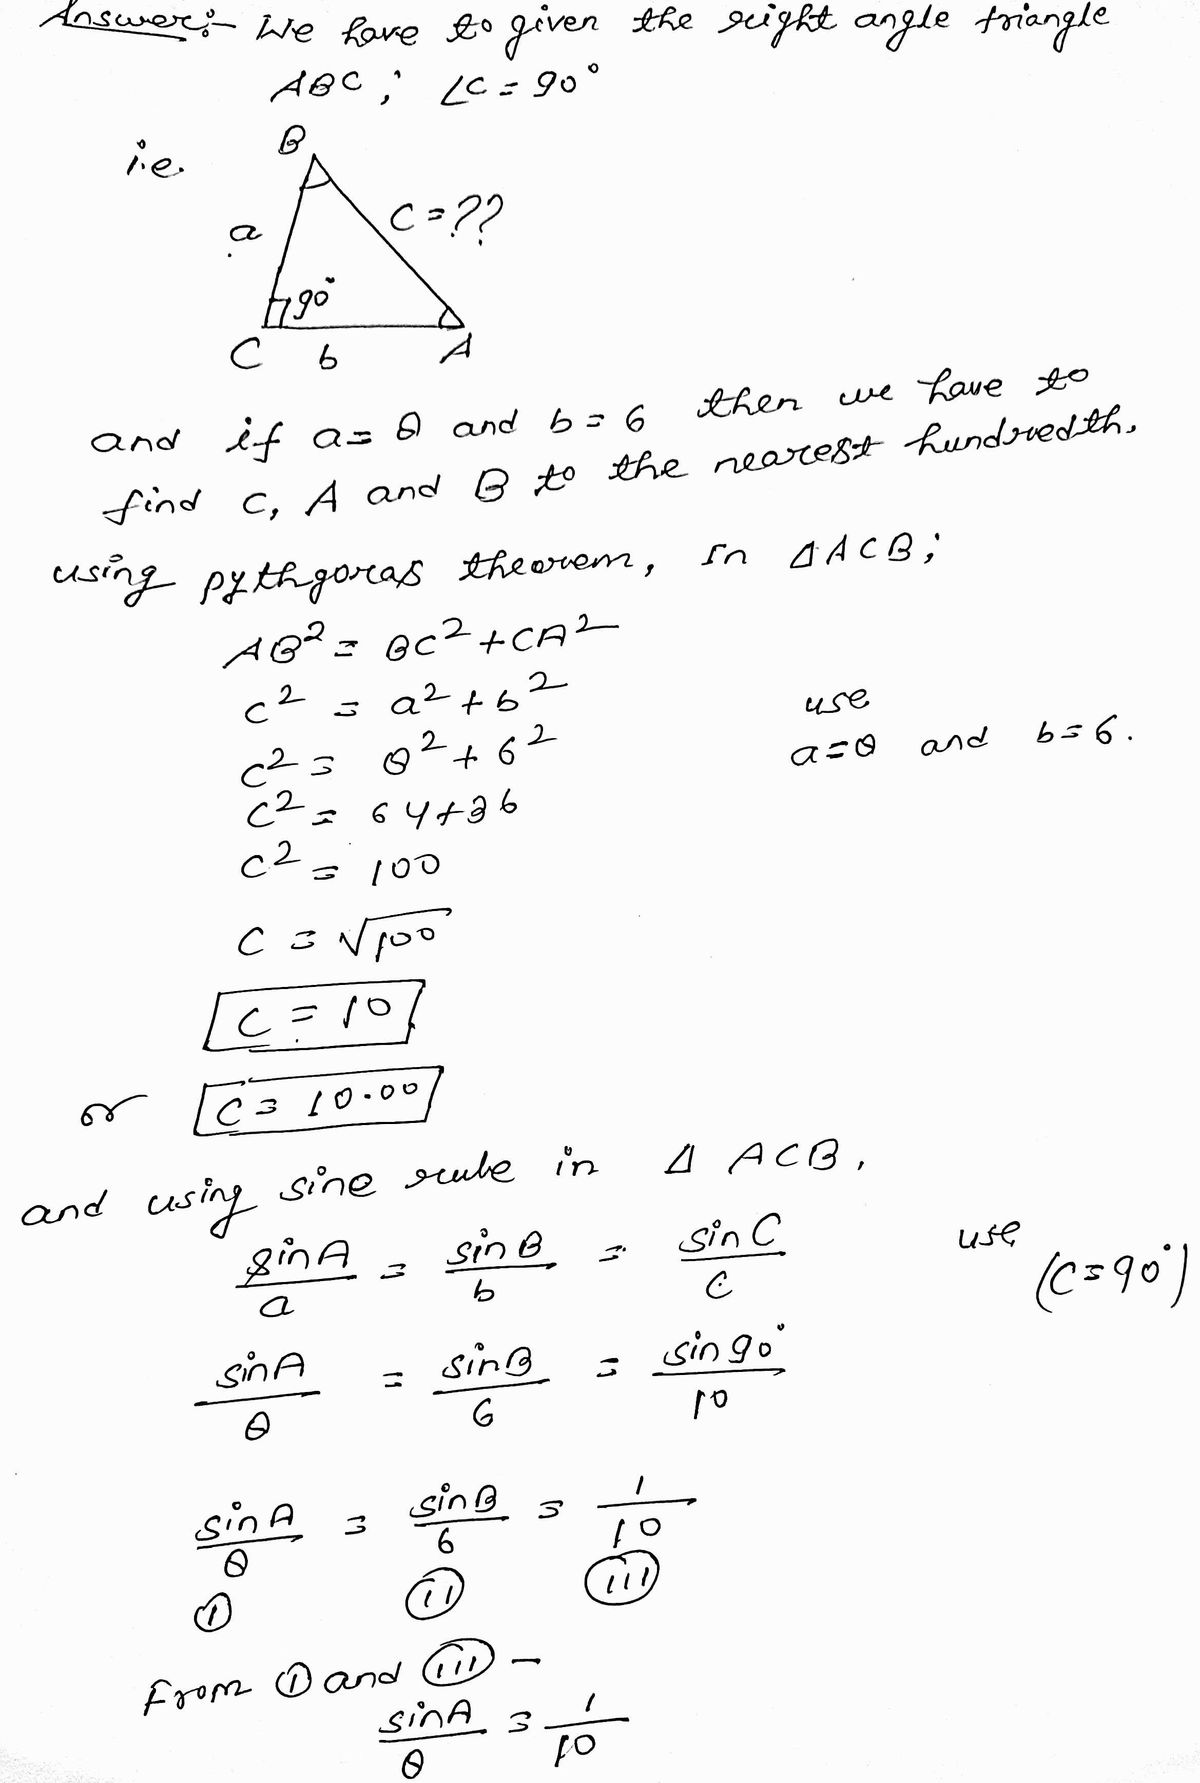 Answer:- We have to given the right angle triangle
ABC; ∠C = 90°
i.e.
B
a
C = ??
90°
C b A
and if a = 8 and b = 6 then we have to
find C, A and B to the nearest hundredth.
using pythgoras theorem, In ΔACB;
AB² = BC² + CA²
c² = a² + b²
use
c² = 8² + 6²
a = 8 and b = 6.
c² = 64 + 36
c² = 100
C = √100
C = 10
or C = 10.00
and using sine rule in Δ ACB,
sinA/a = sinB/b = sinC/c use (C = 90°)
sinA/8 = sinB/6 = sin90°/10
sinA/8 = sinB/6 = 1/10
(i) (ii) (iii)
From (i) and (iii) -
sinA/8 = 1/10